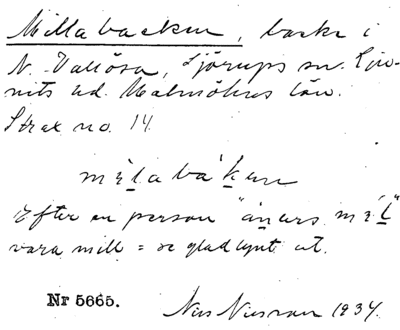 Millabacken, backe i
N. Vallösa, Sjörups sn. Lju-
nits hd. Malmöhus län.
Strax no. 14.
mɛlabákɛn
Efter en person "anɛrs mɛ́l"
vara mill = se glad ut.
Nr 5665.
Nils Nilsson 1934.